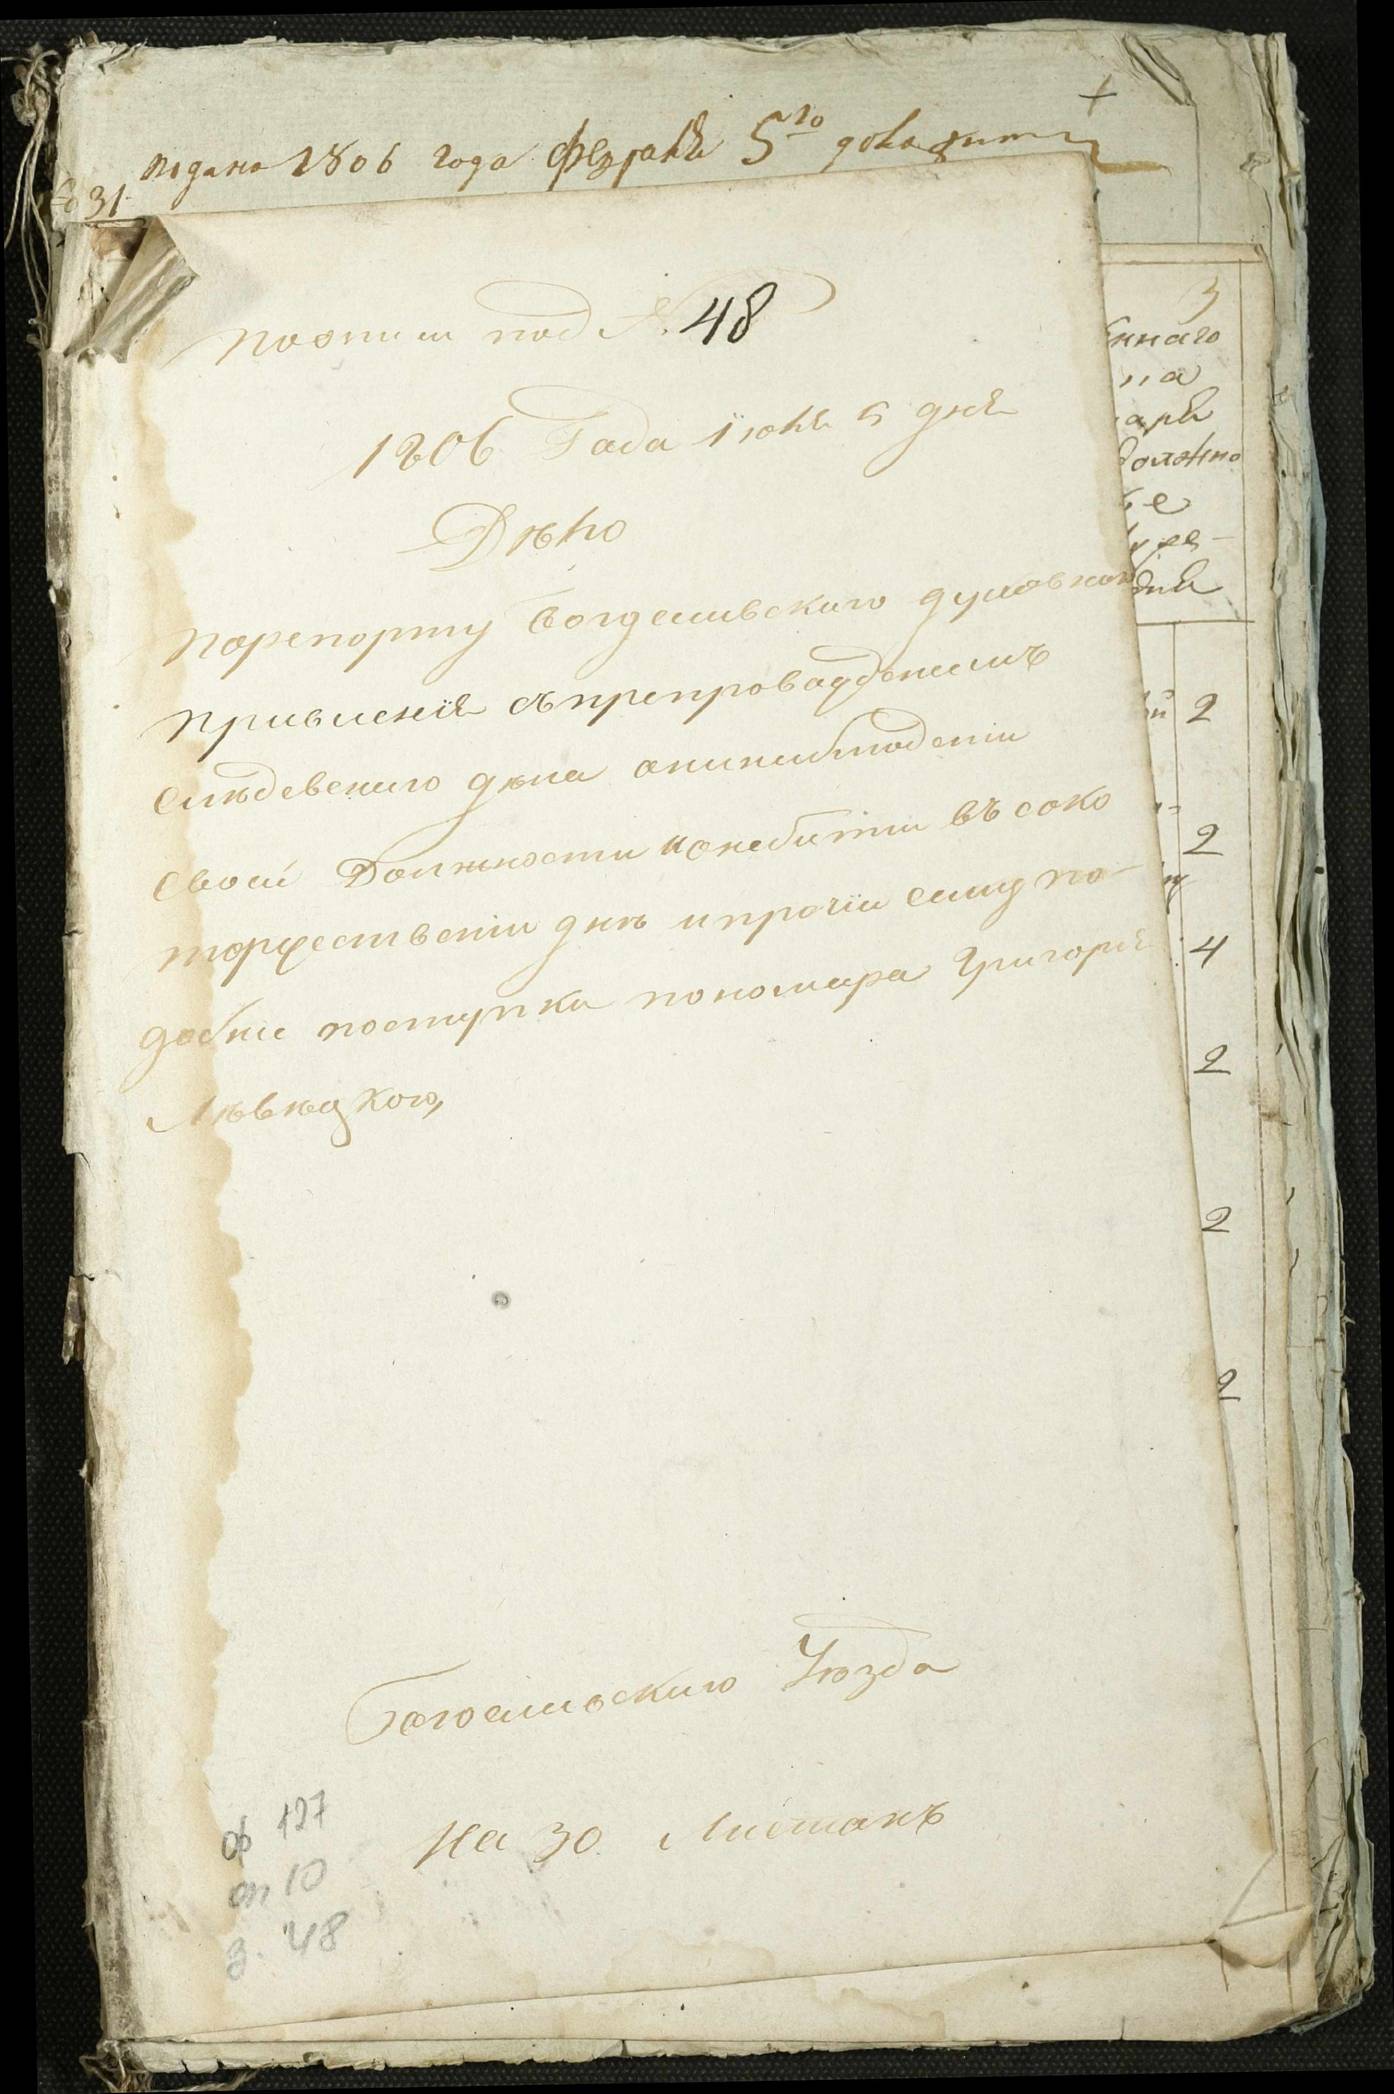 подано 1806 года февраля 5го доложить
31.
по описи под №. 48
1806 Года июля 5 дня
Дѣло
порепорту Богуславского духовнаго
правления съпрепровождениемъ
слѣдственого дѣла онинаблюдении
своей Должности и онебытии въ соко
торжественіи днѣ ипрочіи сему по-
добніе поступки пономара Григорія
Лѣвѣцкого,
Богославского Уезда
На 30 Листахъ
ф 127
оп 10
з. 48
3
ннаго
на
аря
должно
дня
2
2
4
2
2
2